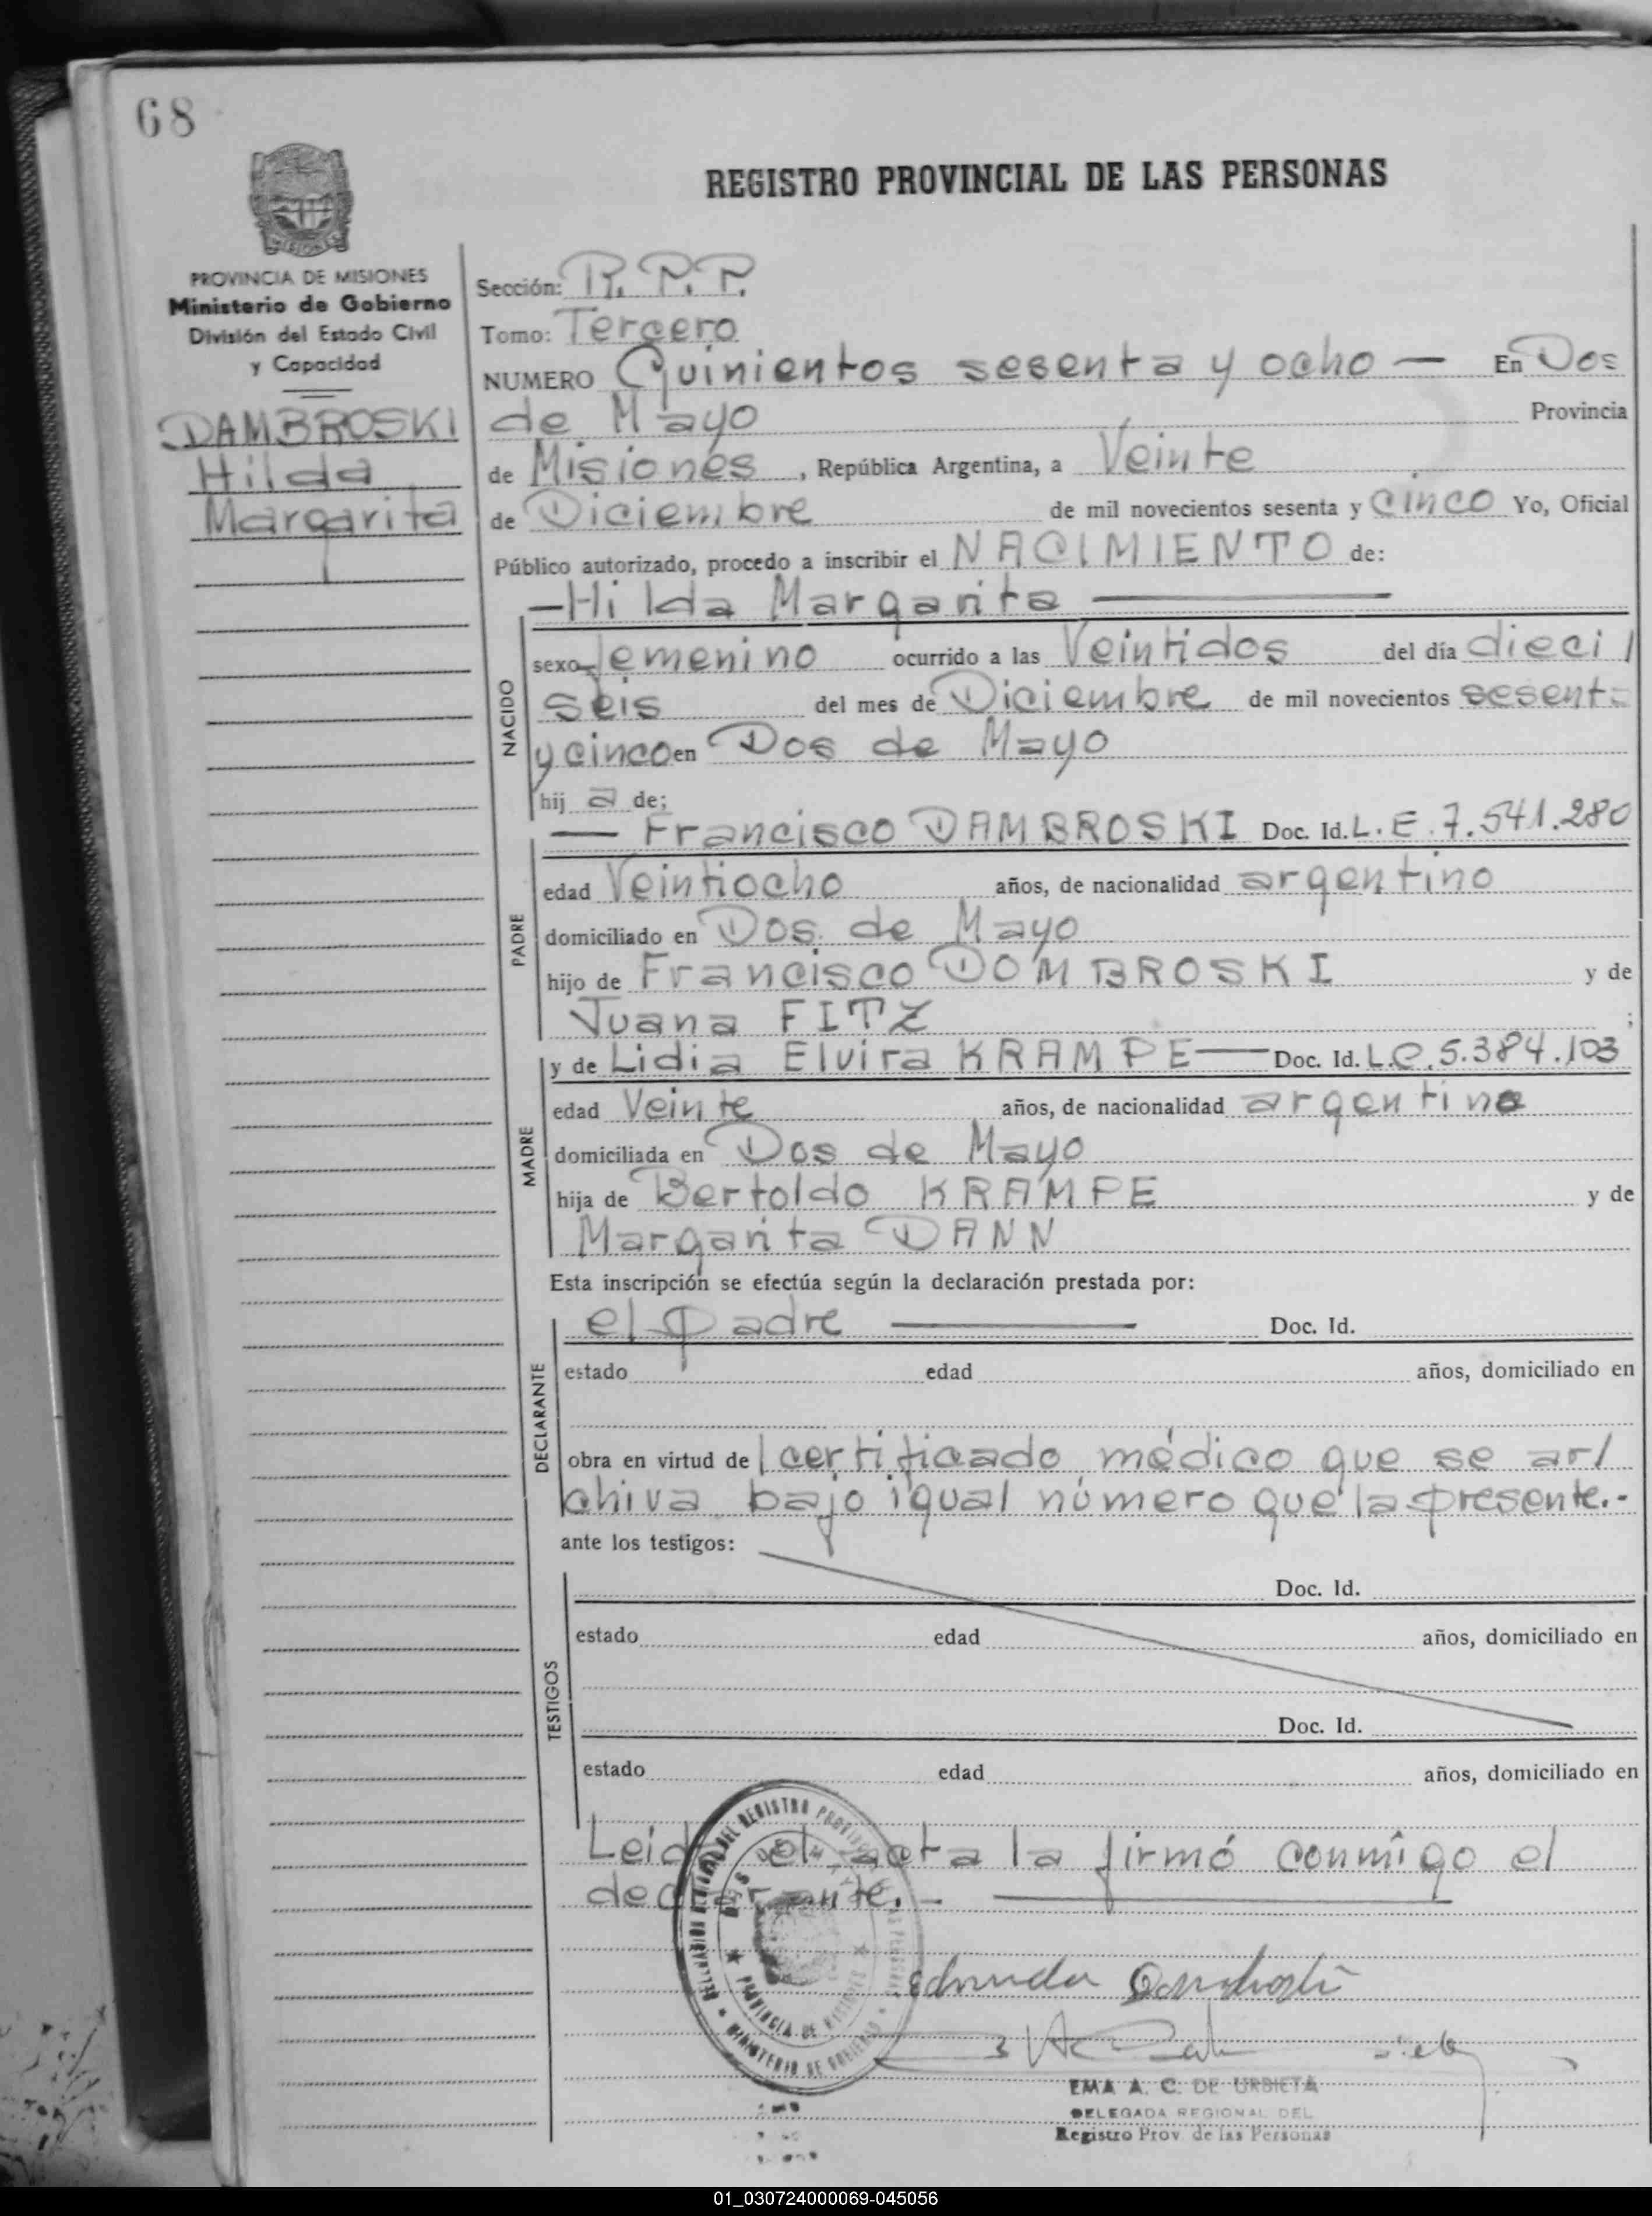 68
REGISTRO PROVINCIAL DE LAS PERSONAS
MISIONES
PROVINCIA DE MISIONES
Ministerio de Gobierno
División del Estado Civil
y Capacidad
DAMBROSKI
Hilda
Margarita
Sección: R.P.P.
Tomo: Tercero
NUMERO Quinientos sesenta y ocho — En Dos
de Mayo Provincia
de Misiones, República Argentina, a Veinte
de Diciembre de mil novecientos sesenta y cinco Yo, Oficial
Público autorizado, procedo a inscribir el NACIMIENTO de:
— Hilda Margarita —
NACIDO
sexo femenino ocurrido a las Veintidos del día dieci/
seis del mes de Diciembre de mil novecientos sesenta
y cinco en Dos de Mayo
hij a de;
PADRE
— Francisco DAMBROSKI Doc. Id. L.E. 7.541.280
edad Veintiocho años, de nacionalidad argentino
domiciliado en Dos de Mayo
hijo de Francisco DOMBROSKI y de
Juana FITZ ;
MADRE
y de Lidia Elvira KRAMPE — Doc. Id. L.C. 5.384.103
edad Veinte años, de nacionalidad argentina
domiciliada en Dos de Mayo
hija de Bertoldo KRAMPE y de
Margarita DANN
Esta inscripción se efectúa según la declaración prestada por:
DECLARANTE
el padre — Doc. Id.
estado edad años, domiciliado en
obra en virtud de l certificado médico que se ar/
chiva bajo igual número que la presente.-
ante los testigos:
TESTIGOS
Doc. Id.
estado edad años, domiciliado en
Doc. Id.
estado edad años, domiciliado en
Leida el acta la firmó conmigo el
declarante. -
DEL REGISTRO PROVINCIAL DE LAS PERSONAS
DOS DE MAYO
PROVINCIA DE MISIONES
MINISTERIO DE GOBIERNO
EMA A. C. DE URBIETA
DELEGADA REGIONAL DEL
Registro Prov. de las Personas
01_030724000069-045056